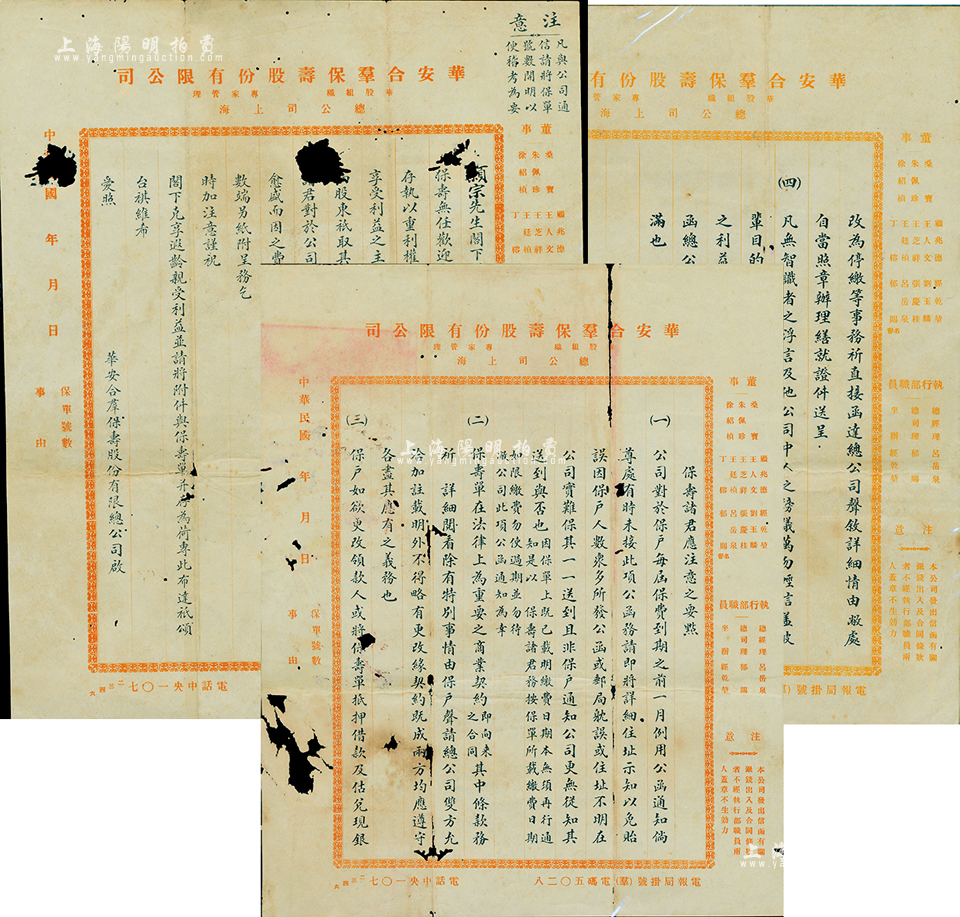 注意
凡與公司通
信請將保單
號數開明以
便稽考為要
華安合羣保壽股份有限公司
華股組織 專家管理
總公司上海
董事
桑寶
朱佩珍
徐紹楨
王人文
王芝祥
王廷楨
丁
顧宗先生閣下
保壽無任歡迎
存執以重利權
享受利益之主
股東祇取其
君對於公司
愈盛而因之費
數端另紙附呈務乞
時加注意謹祝
閣下克享遐齡親受利益並請將附件與保壽單并存為荷專此布達祇頌
台祺維布
愛照
華安合羣保壽股份有限總公司啟
中 國 年 月 日
保單號數
事由
電話中央一〇七二三四六
華安合羣保壽股份有限公司
華股組織 專家管理
總公司上海
董事
桑寶
朱佩珍
徐紹楨
顧兆德
王人文
王芝祥
王廷楨
丁榕
經乾堃
劉玉麟
張慶桂
呂岳泉
郁賜
執行部職員
總經理呂岳泉
總司理郁賜
坐辦經乾堃
注意
本公司發出信函有關
銀錢出入及合同條欵
者不經執行部職員兩
人蓋章不生効力
改為停繳等事務祈直接函達總公司聲敘詳細情由敝處
自當照章辦理繕就證件送呈
(四) 凡無智識者之浮言及他公司中人之謗議萬勿輕言羞彼
輩目的
之利益
函總公
滿也
電報局掛號(羣)
華安合羣保壽股份有限公司
股組織 專家管理
總公司上海
董事
桑寶
朱佩珍
徐紹楨
顧兆德
王人文
王芝祥
王廷楨
丁榕
經乾堃
劉玉麟
張慶桂
呂岳泉
郁賜
執行部職員
總經理呂岳泉
總司理郁賜
坐辦經乾堃
注意
本公司發出信函有關
銀錢出入及合同條欵
者不經執行部職員兩
人蓋章不生効力
保壽諸君應注意之要點
(一) 公司對於保戶每屆保費到期之前一月例用公函通知倘
尊處有時未接此項公函務請即將詳細住址示知以免貽
誤因保戶人數衆多所發公函或郵局躭誤或住址不明在
公司實難保其一一送到且非保戶通知公司更無從知其
送到與否也因保單上既已載明繳費日期本無須再行通
知是以保壽諸君務按保單所載繳費日期
如限繳費勿使過期並勿待
敝公司此項公函通知為幸
(二) 保壽單在法律上為重要之商業契約即向來之合同其中條款務
祈詳細閱看除有特別事情由保戶聲請總公司雙方允
洽加註載明外不得略有更改緣契約既成兩方均應遵守
各盡其應有之義務也
(三) 保戶如欲更改領款人或將保壽單抵押借款及估兌現銀
中華民國 年 月 日
保單號數
事由
電報局掛號(羣)電碼五〇二八
電話中央一〇七二三四六
上海陽明拍賣
www.yangmingauction.com
上海陽明拍賣
www.yangmingauction.com